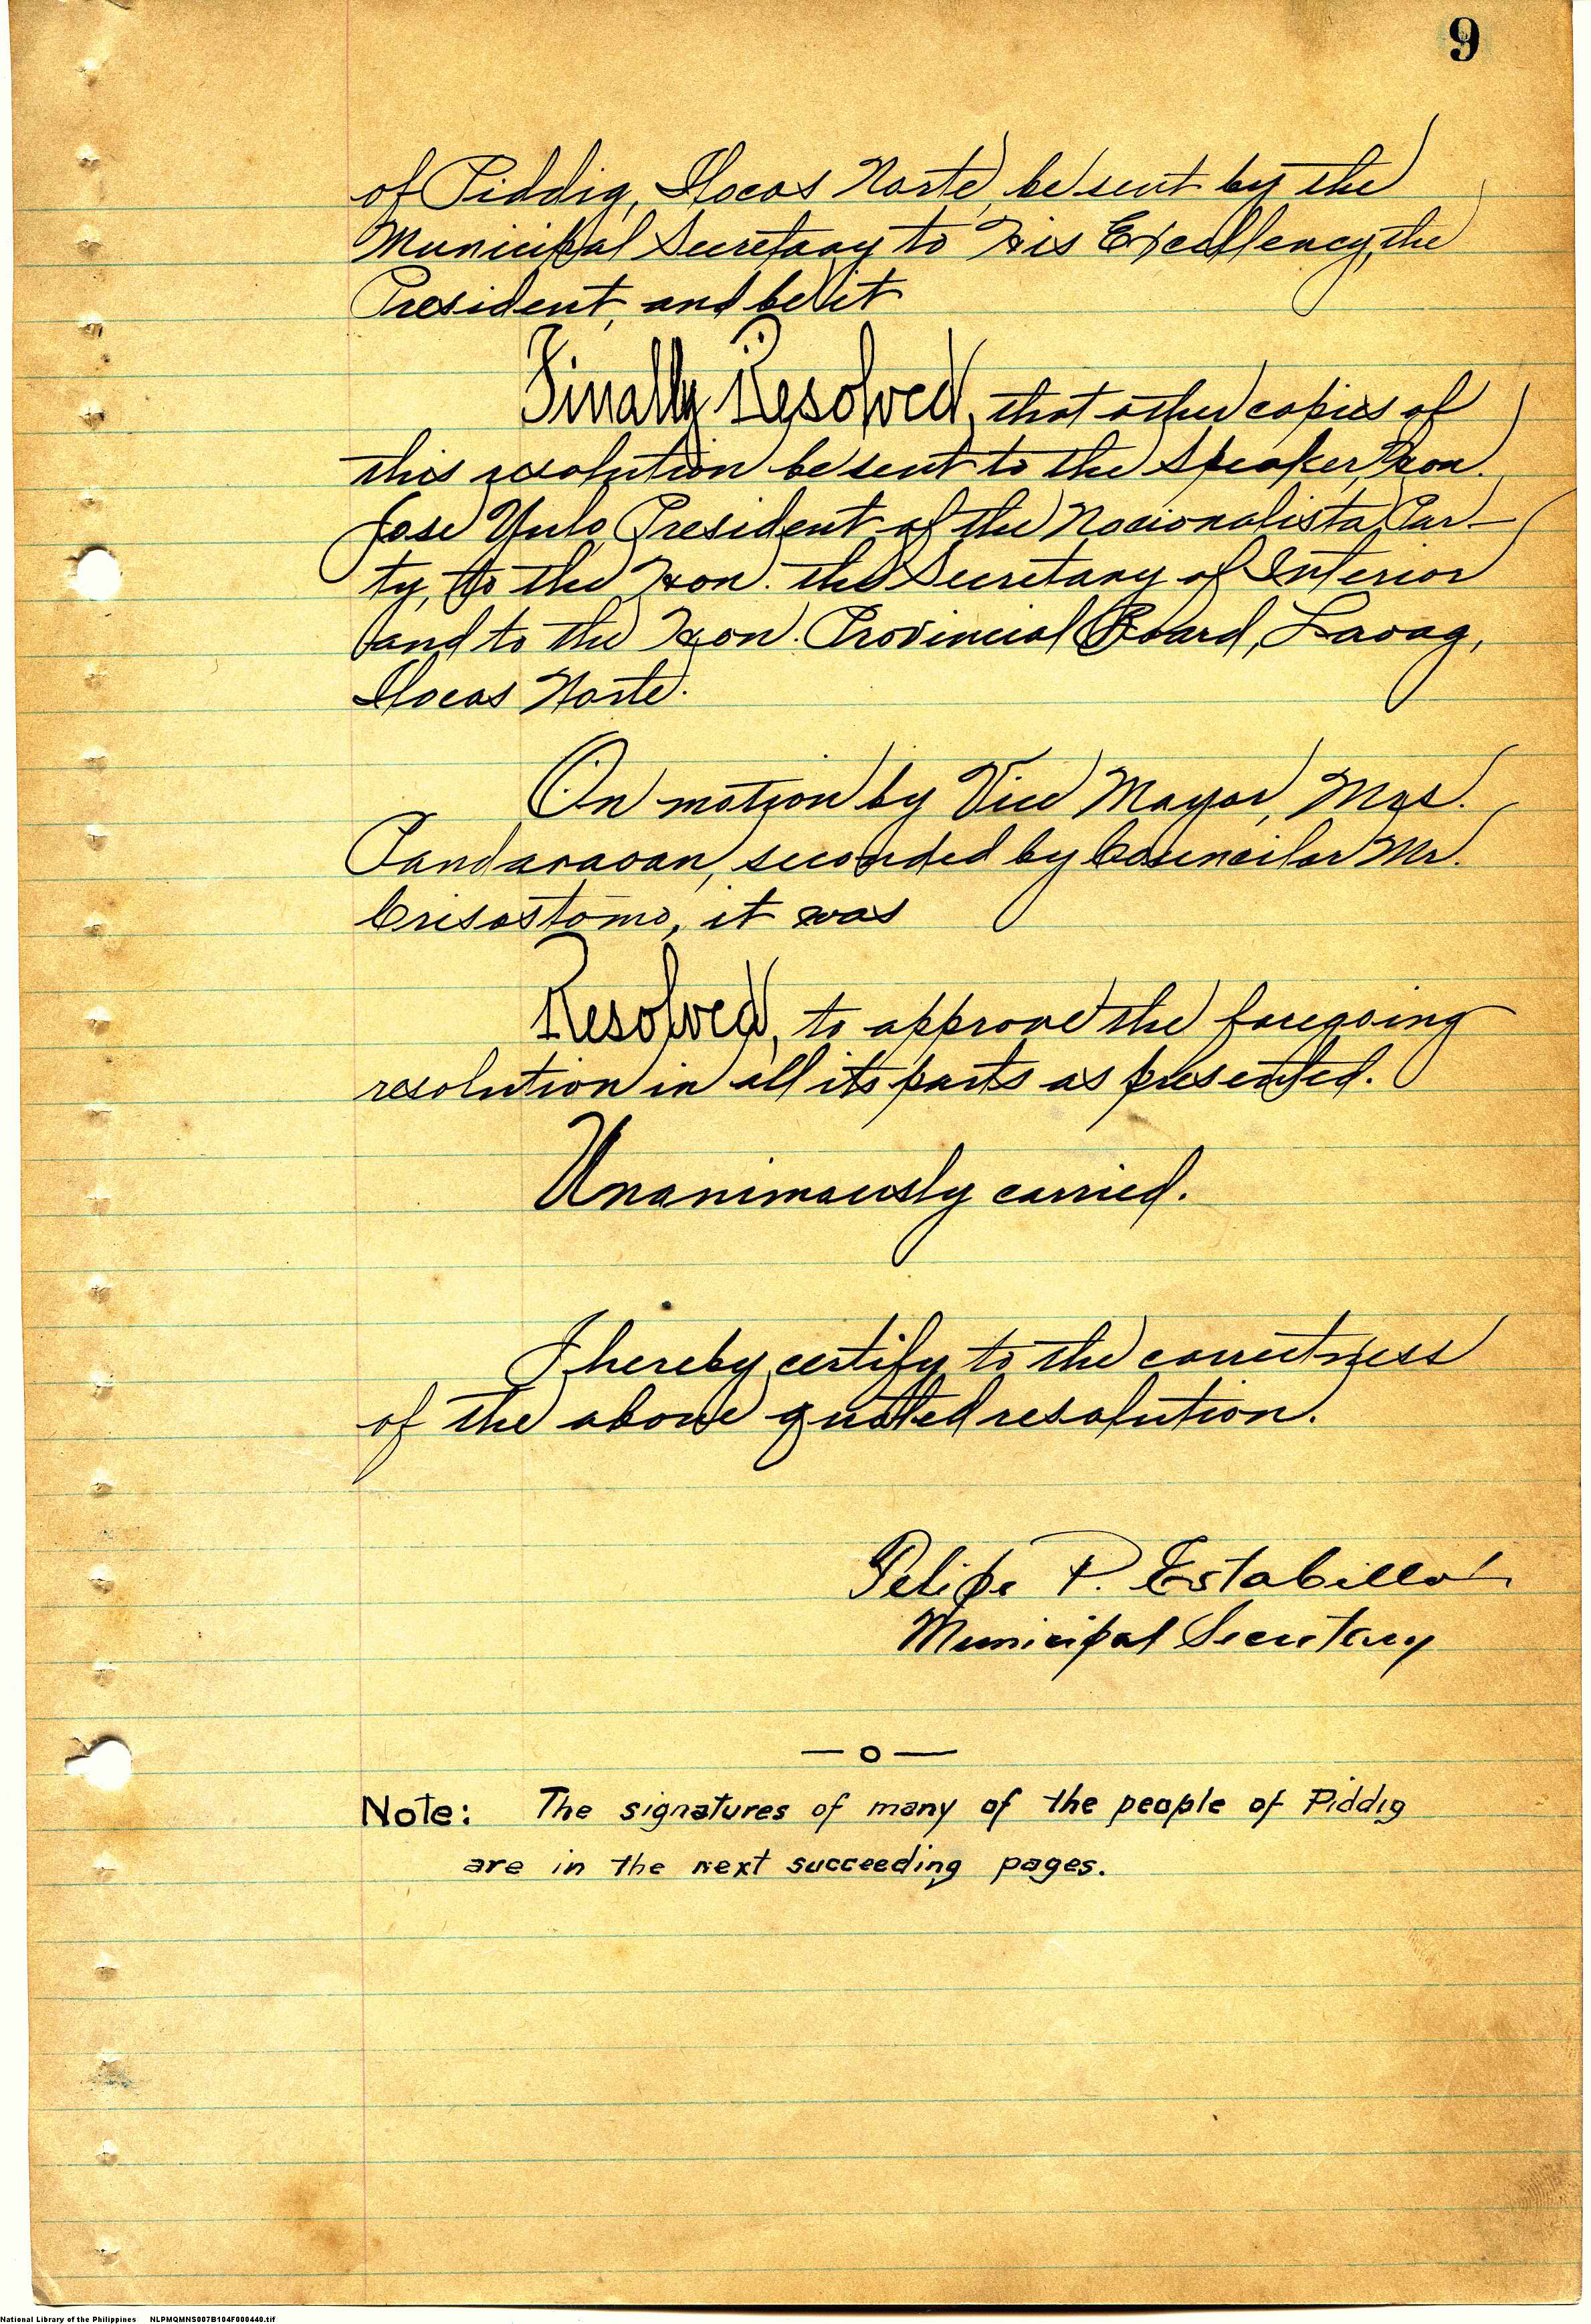 9
of Piddig, Ilocos Norte, be sent by the
Municipal Secretary to His Excellency, the
President, and be it
Finally Resolved, that other copies of
this resolution be sent to the Speaker, Hon.
Jose Yulo, President of the Nacionalista Par-
ty, to the Hon. the Secretary of Interior
and to the Hon. Provincial Board, Laoag,
Ilocos Norte.
On motion by Vice Mayor, Mrs.
Pandaraoan, seconded by Councilor Mr.
Crisostomo, it was
Resolved, to approve the foregoing
resolution in all its parts as presented.
Unanimously carried.
I hereby certify to the correctness
of the above quoted resolution.
Felipe P. Estabillo
Municipal Secretary
—o—
Note: The signatures of many of the people of Piddig
are in the next succeeding pages.
National Library of the Philippines NLPMQMNS007B104F000440.tif